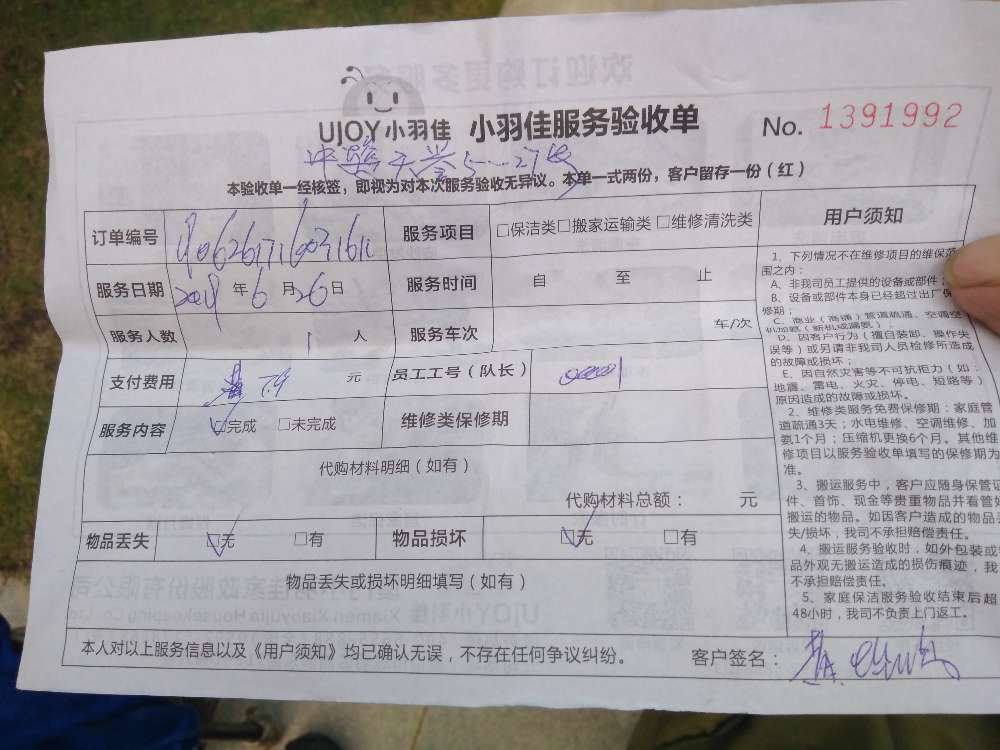 UJOY小羽佳 小羽佳服务验收单 No. 1391992
本验收单一经核签，即视为对本次服务验收无异议。本单一式两份，客户留存一份（红）
订单编号
服务项目 □保洁类□搬家运输类□维修清洗类
服务日期 2019年6月26日
服务时间 自 至 止
服务人数 1 人
服务车次 车/次
支付费用 元
员工工号（队长）
服务内容 □完成 □未完成
维修类保修期
代购材料明细（如有）
代购材料总额： 元
物品丢失 □无 □有
物品损坏 □无 □有
物品丢失或损坏明细填写（如有）
本人对以上服务信息以及《用户须知》均已确认无误，不存在任何争议纠纷。
客户签名：
用户须知
1、下列情况不在维修项目的维保范
围之内：
A、非我司员工提供的设备或部件；
B、设备或部件本身已经超过出厂保
修期；
C、商业（商铺）管道疏通、空调空
机加氨（新机或漏氨）；
D、因客户行为（擅自装卸、操作失
误等）或另请非我司人员检修所造成
的故障或损坏；
E、因自然灾害等不可抗拒力（如：
地震、雷电、火灾、停电、短路等）
原因造成的故障或损坏。
2、维修类服务免费保修期：家庭管
道疏通3天；水电维修、空调维修、加
氨1个月；压缩机更换6个月。其他维
修项目以服务验收单填写的保修期为
准。
3、搬运服务中，客户应随身保管证
件、首饰、现金等贵重物品并看管好
搬运的物品。如因客户造成的物品丢
失/损坏，我司不承担赔偿责任。
4、搬运服务验收时，如外包装或
品外观无搬运造成的损伤痕迹，我
不承担赔偿责任。
5、家庭保洁服务验收结束后超
48小时，我司不负责上门返工。